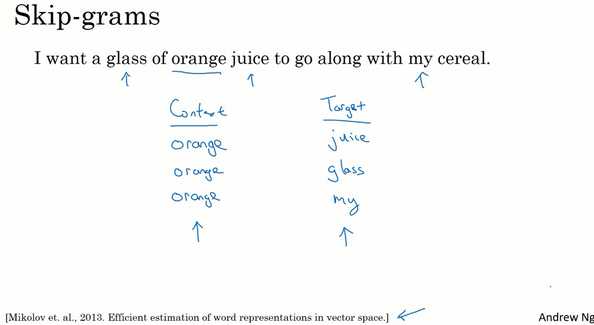 Skip-grams
I want a glass of orange juice to go along with my cereal.
Context Target
orange juice
orange glass
orange my
[Mikolov et. al., 2013. Efficient estimation of word representations in vector space.]
Andrew Ng